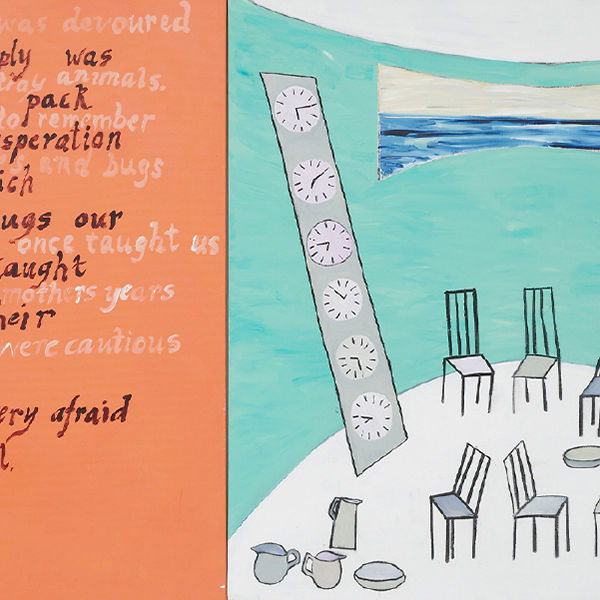 was devoured
ply was
tray animals.
pack
to remember
speration
s and bugs
ich
ugs our
once taught us
taught
mothers years
heir
were cautious
ery afraid
l.